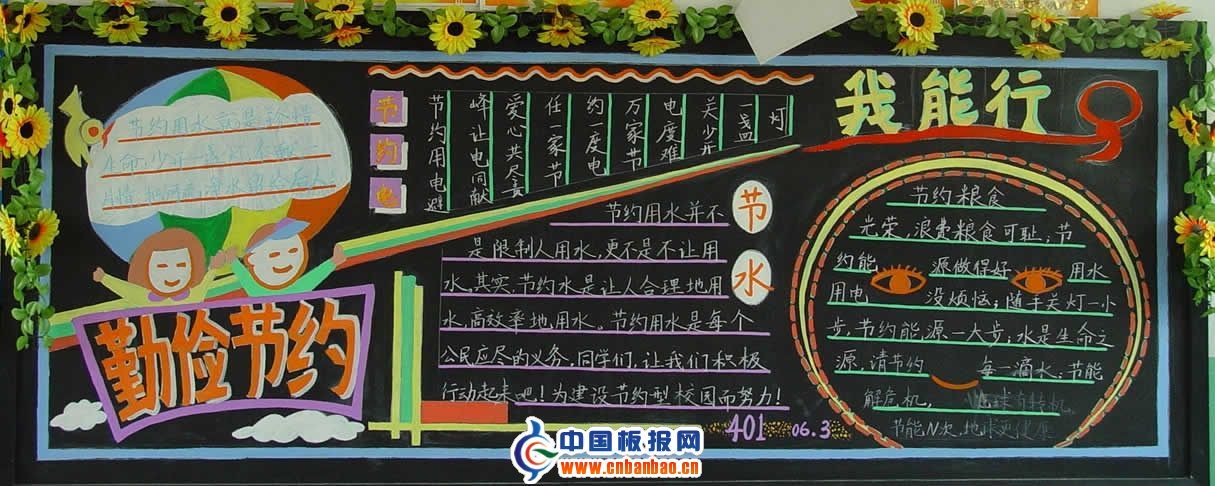 勤俭节约
节约用水就是珍惜
生命,少开一盏灯,奉献
节约电
节约用电避
峰让电同献
爱心共尽责
任一家节
约度电
万家节
电度难
关少开
一盏
灯
节水
节约用水并不
是限制人用水,更不是不让用
水,其实,节约水是让人合理地用
水,高效率地用水。节约用水是每个
公民应尽的义务,同学们,让我们积极
行动起来吧!为建设节约型校园而努力!
401 06.3
我能行
节约粮食
光荣,浪费粮食可耻;节
约能源做得好用水
用电没烦恼;随手关灯一小
步,节约能源一大步;水是生命之
源,请节约每一滴水;节能
解危机,地球有转机,
节能N次,地球更健康
中国板报网
www.cnbanbao.cn